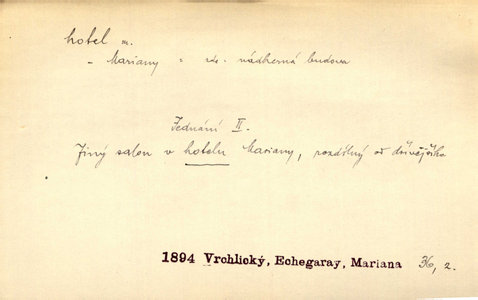 hotel m.
- Mariany = zde: nádherná budova
Jednání II.
Jiný salon v hotelu Mariany, rozdílný od dřívějšího
1894 Vrchlický, Echegaray, Mariana 36, 2.